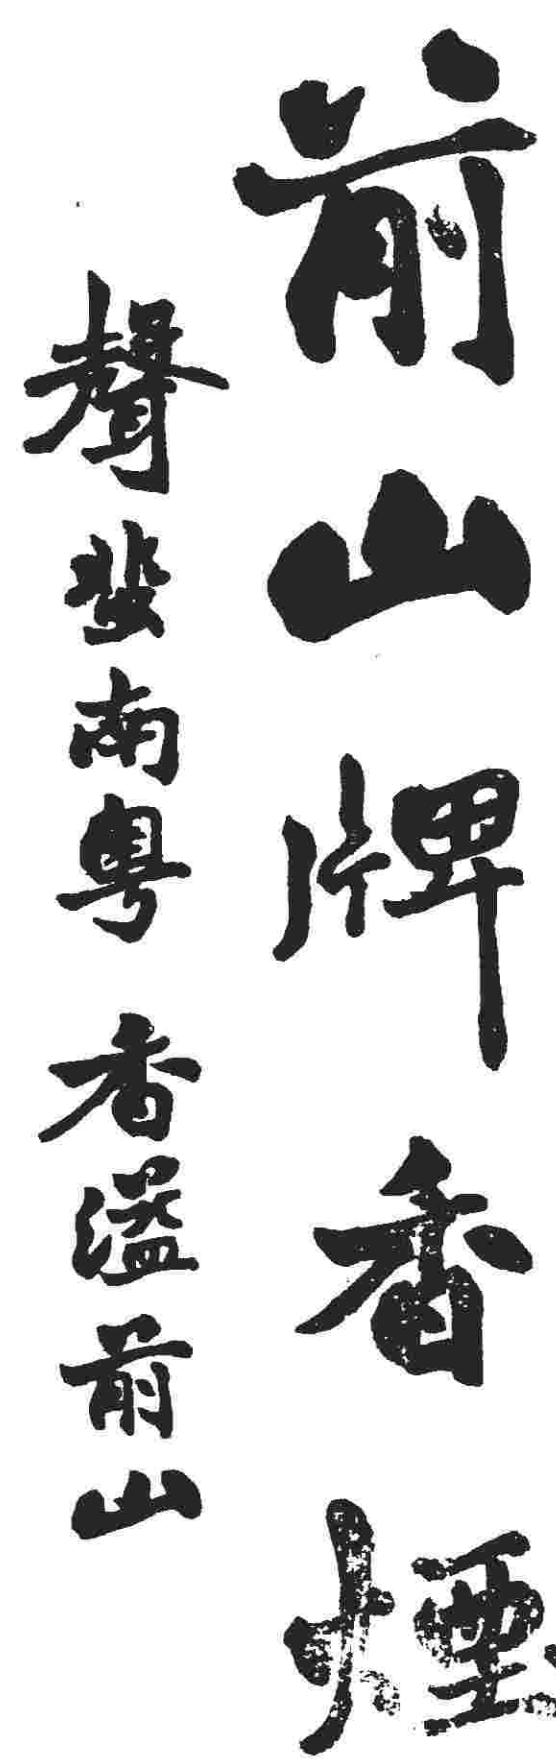 前山牌香煙
聲蜚南粤 香溢前山